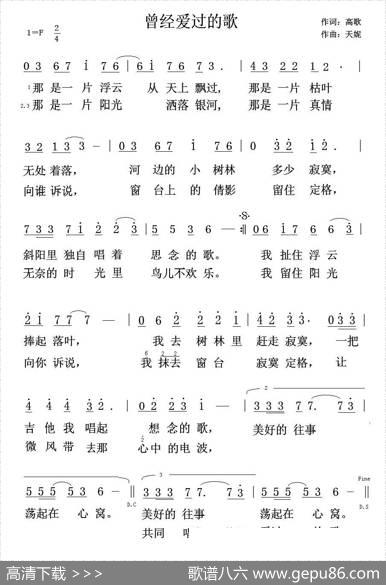 曾经爱过的歌
作词：高歌
1=F 2/4
作曲：天妮
0 3 6 7 1 7 6 | 6 1 6 3 7 6 7 3 . | 0 3 6 7 1 7 6 | 0 2 3 2 1 2 . |
1.那 是 一 片 浮云 从 天上 飘过， 那是 一片 枯叶
2.3那 是 一 片 阳光 洒落 银河， 那是 一片 真情
3 2 1 3 3 - | 0 3 6 7 1 7 6 | 0 4 3 2 1 2 . |
无处 着落， 河 边的 小 树林 多少 寂寞，
向谁 诉说， 窗 台上 的 倩影 留住 定格，
7 3 3 7 1 2 2 3 | 5 5 5 2 3 - 0 6 1 7 6 6 3 |
斜阳里 独自 唱着 思 念的 歌。 我 扯住 浮云
无奈的 时 光里 鸟儿不 欢 乐。 我 留住 阳光
2 1 7 7 7 - | 0 6 2 2 2 1 2 | 4 2 2 3 . 0 3 3 |
捧起 落叶， 我 去 树林 里 赶走 寂寞， 一把
向你 诉说， 我 抹去 窗 台 寂寞 定格， 让
4 4 4 3 2 . | 0 2 2 3 1 - | 3 3 3 7 7 . 7 3 |
吉 他 我 唱起 想 念的 歌， 美好的 往事
微 风 带 去那 心中的 电波，
5 5 5 5 3 6 - D.C 3 3 3 7 7 . 7 3 | 5 5 5 5 3 6 - Fine D.S
荡起在 心 窝。 美好的 往事 荡起在 心 窝。
共同
高清下载 >>>
歌谱八六 www.gepu86.com